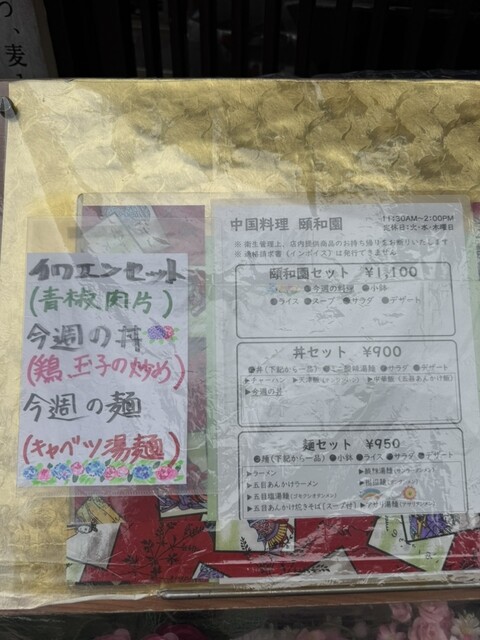 麦
イワエンセット
(青椒肉片)
今週の丼
(鶏玉子の炒め)
今週の麺
(キャベツ湯麺)
中国料理 頤和園
11:30AM~2:00PM
定休日:火・水・木曜日
※ 衛生管理上、店内提供商品のお持ち帰りをお断りいたします
※ 適格請求書(インボイス)は発行できません
頤和園セット ¥1,100
●今週の料理 ●小鉢
●ライス ●スープ ●サラダ ●デザート
丼セット ¥900
●丼(下記から一品) ●ミニ麺 ●サラダ ●デザート
▶チャーハン ▶天津飯 ▶中華飯(五目あんかけ飯)
▶今週の丼
麺セット ¥950
●麺(下記から一品) ●小鉢 ●ライス ●サラダ ●デザート
▶ラーメン
▶五目あんかけラーメン
▶五目塩湯麺(ゴモクシオタンメン)
▶五目あんかけ焼きそば(スープ付)